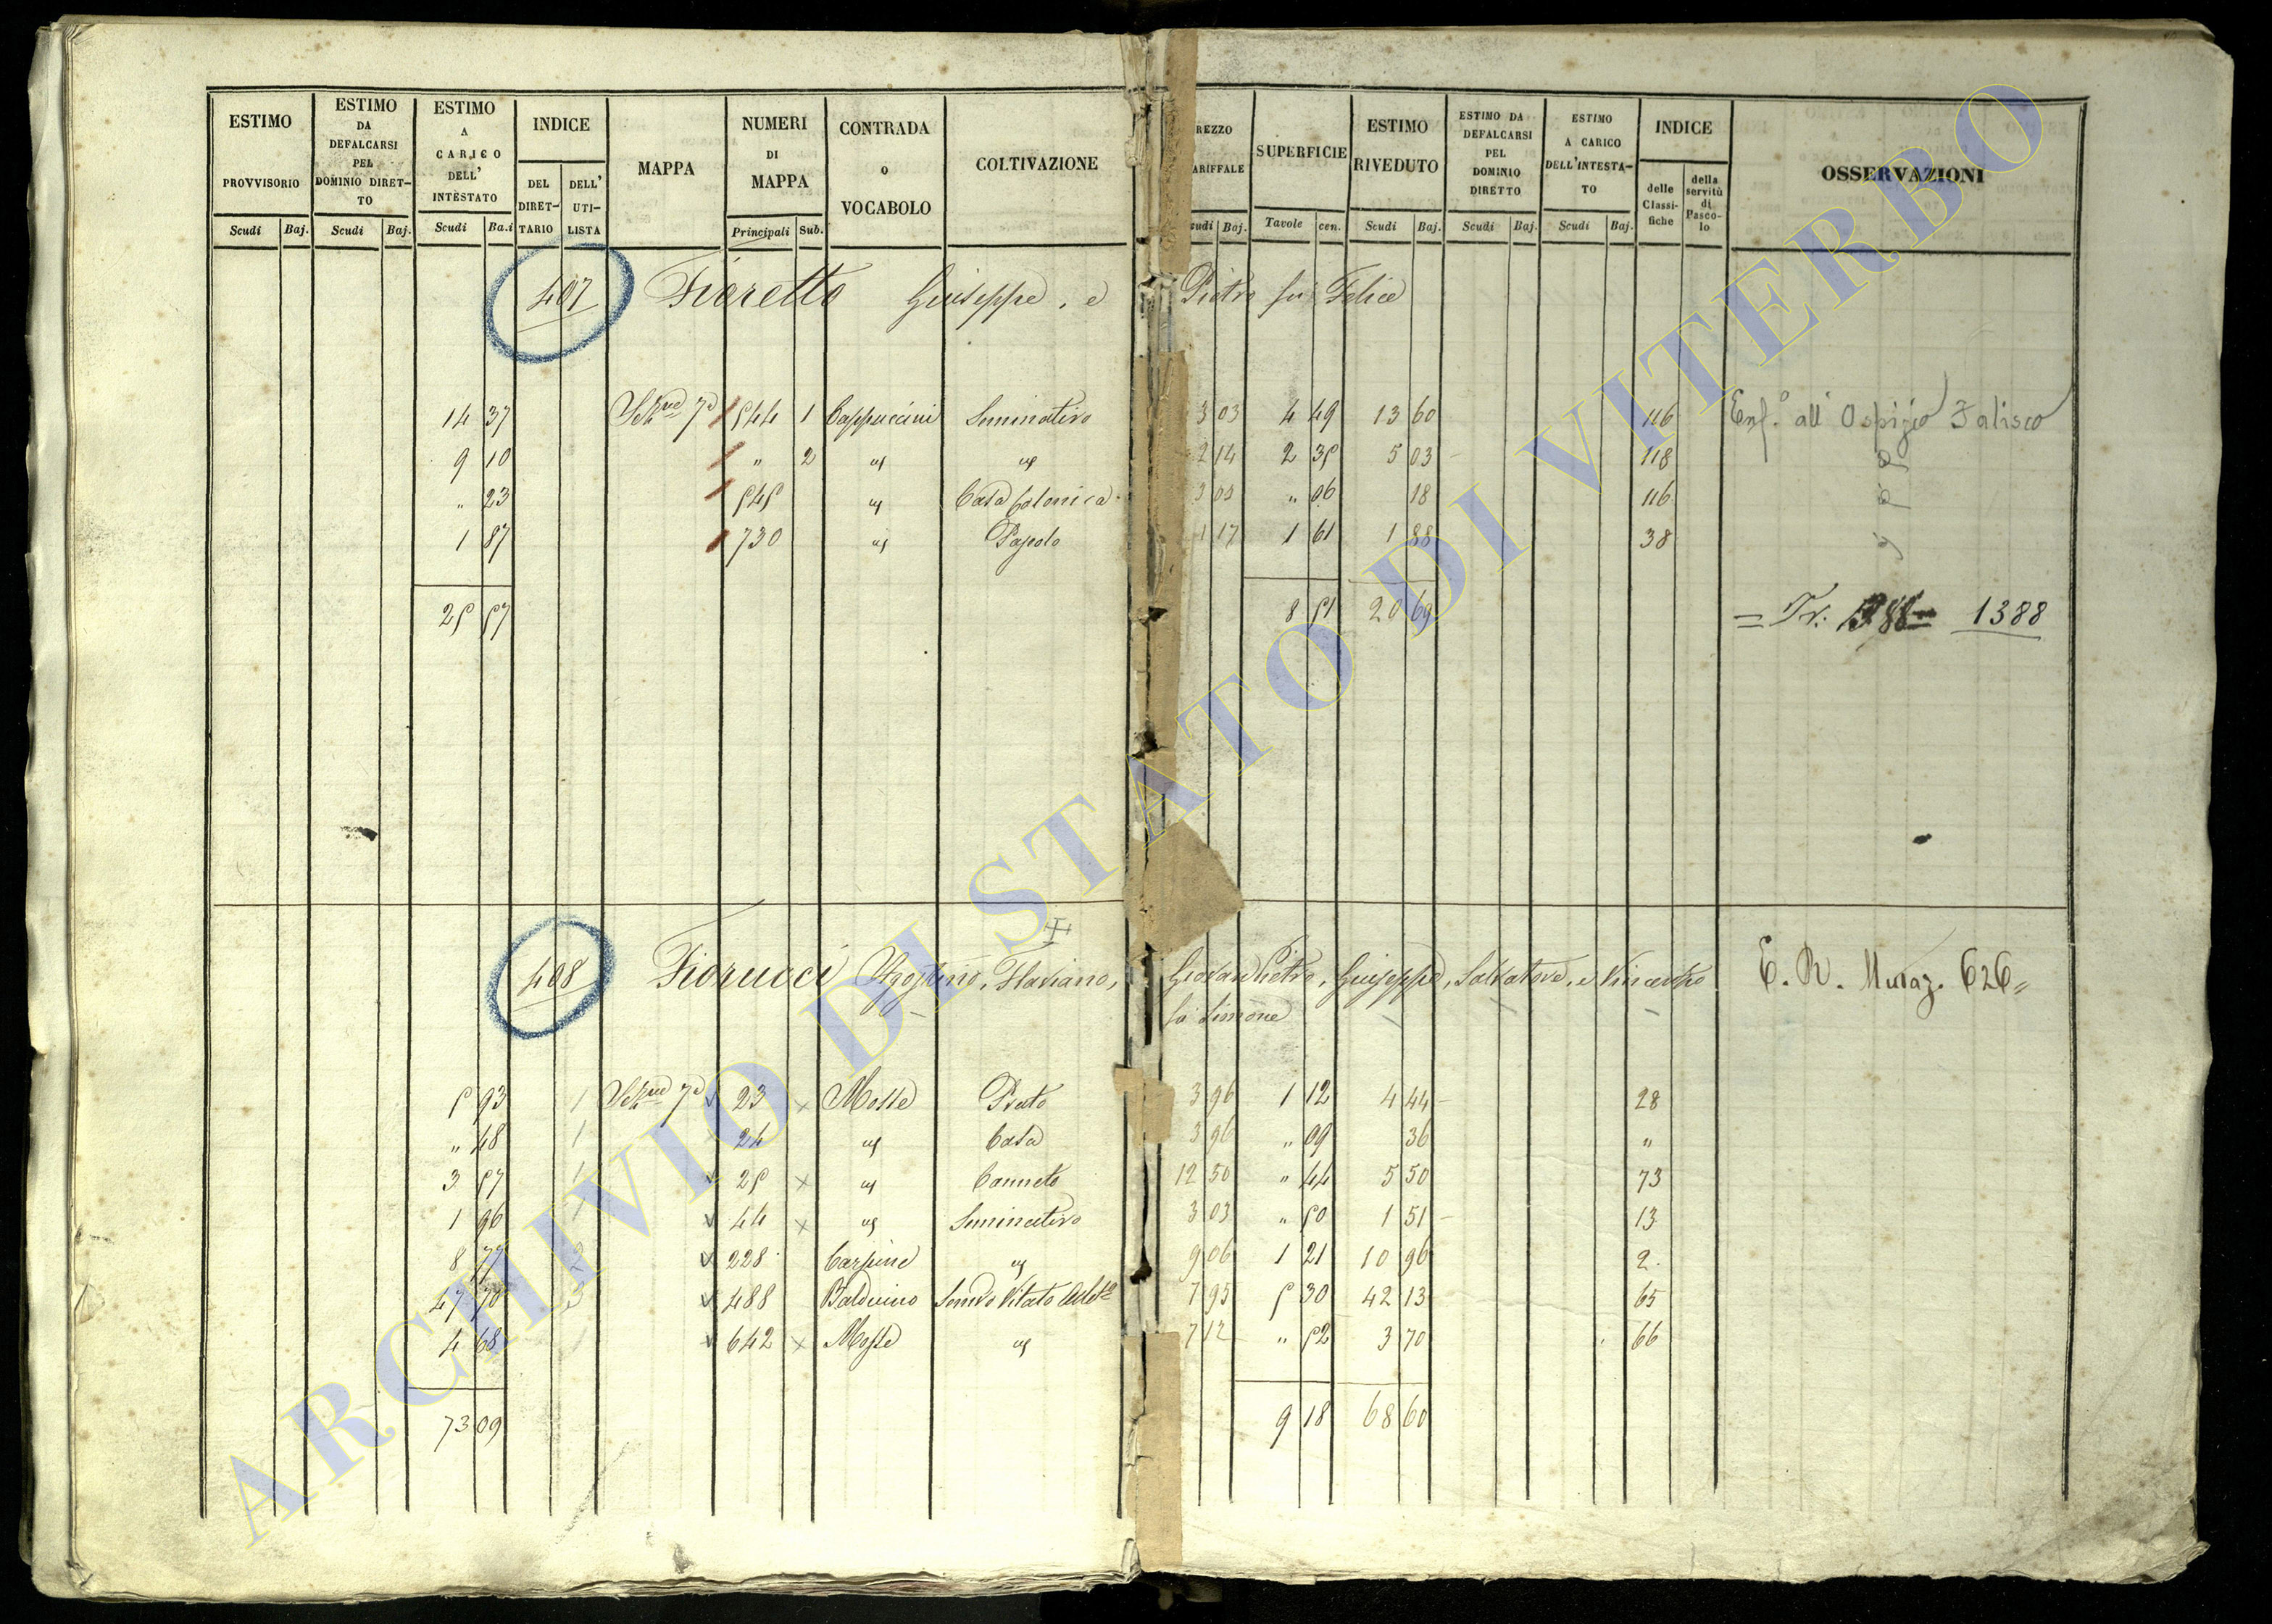 ESTIMO PROVVISORIO Scudi Baj.
ESTIMO DA DEFALCARSI PEL DOMINIO DIRET-TO Scudi Baj.
ESTIMO A CARICO DELL' INTESTATO Scudi Ba.i
INDICE DEL DIRET-TARIO DELL' UTI-LISTA
MAPPA
NUMERI DI MAPPA Principali Sub.
CONTRADA o VOCABOLO
COLTIVAZIONE
REZZO ARIFFALE udi Baj.
SUPERFICIE Tavole cen.
ESTIMO RIVEDUTO Scudi Baj.
ESTIMO DA DEFALCARSI PEL DOMINIO DIRETTO Scudi Baj.
ESTIMO A CARICO DELL'INTESTA-TO Scudi Baj.
INDICE delle Classi-fiche della servitù di Pasco-lo
OSSERVAZIONI
407 Fioretto Giuseppe, e Pietro fu Felice
14 37 Sez.ne 7a 544 1 Cappuccini Seminativo 3 03 4 49 13 60 116 Enf. all' Ospizio Falisco
9 10 " 2 " " 2 14 2 35 5 03 118
" 23 545 " Casa Colonica 3 03 " 06 18 116
1 87 730 " Pascolo 1 17 1 61 1 88 38
25 57 8 51 20 69 = Tr. 1388
408 Fiorucci Agostino, Flaviano, Giovan Pietro, Giuseppe, Salvatore, e Vincenzo E. R. Muraz. 626 "
fu Simone
5 93 1 Sez.ne 7a 23 x Mosse Prato 3 96 1 12 4 44 28
" 48 1 24 " Casa 3 96 " 09 36 "
3 57 1 25 x " Canneto 12 50 " 44 5 50 73
1 96 1 44 x " Seminativo 3 03 " 50 1 51 13
8 77 2 228 Carpine " 9 06 1 21 10 96 2
47 70 3 488 Balduino Semvo Vitato 7 95 5 30 42 13 65
4 68 1 642 x Mosse " 7 12 " 52 3 70 66
73 09 9 18 68 60
ARCHIVIO DI STATO DI VITERBO